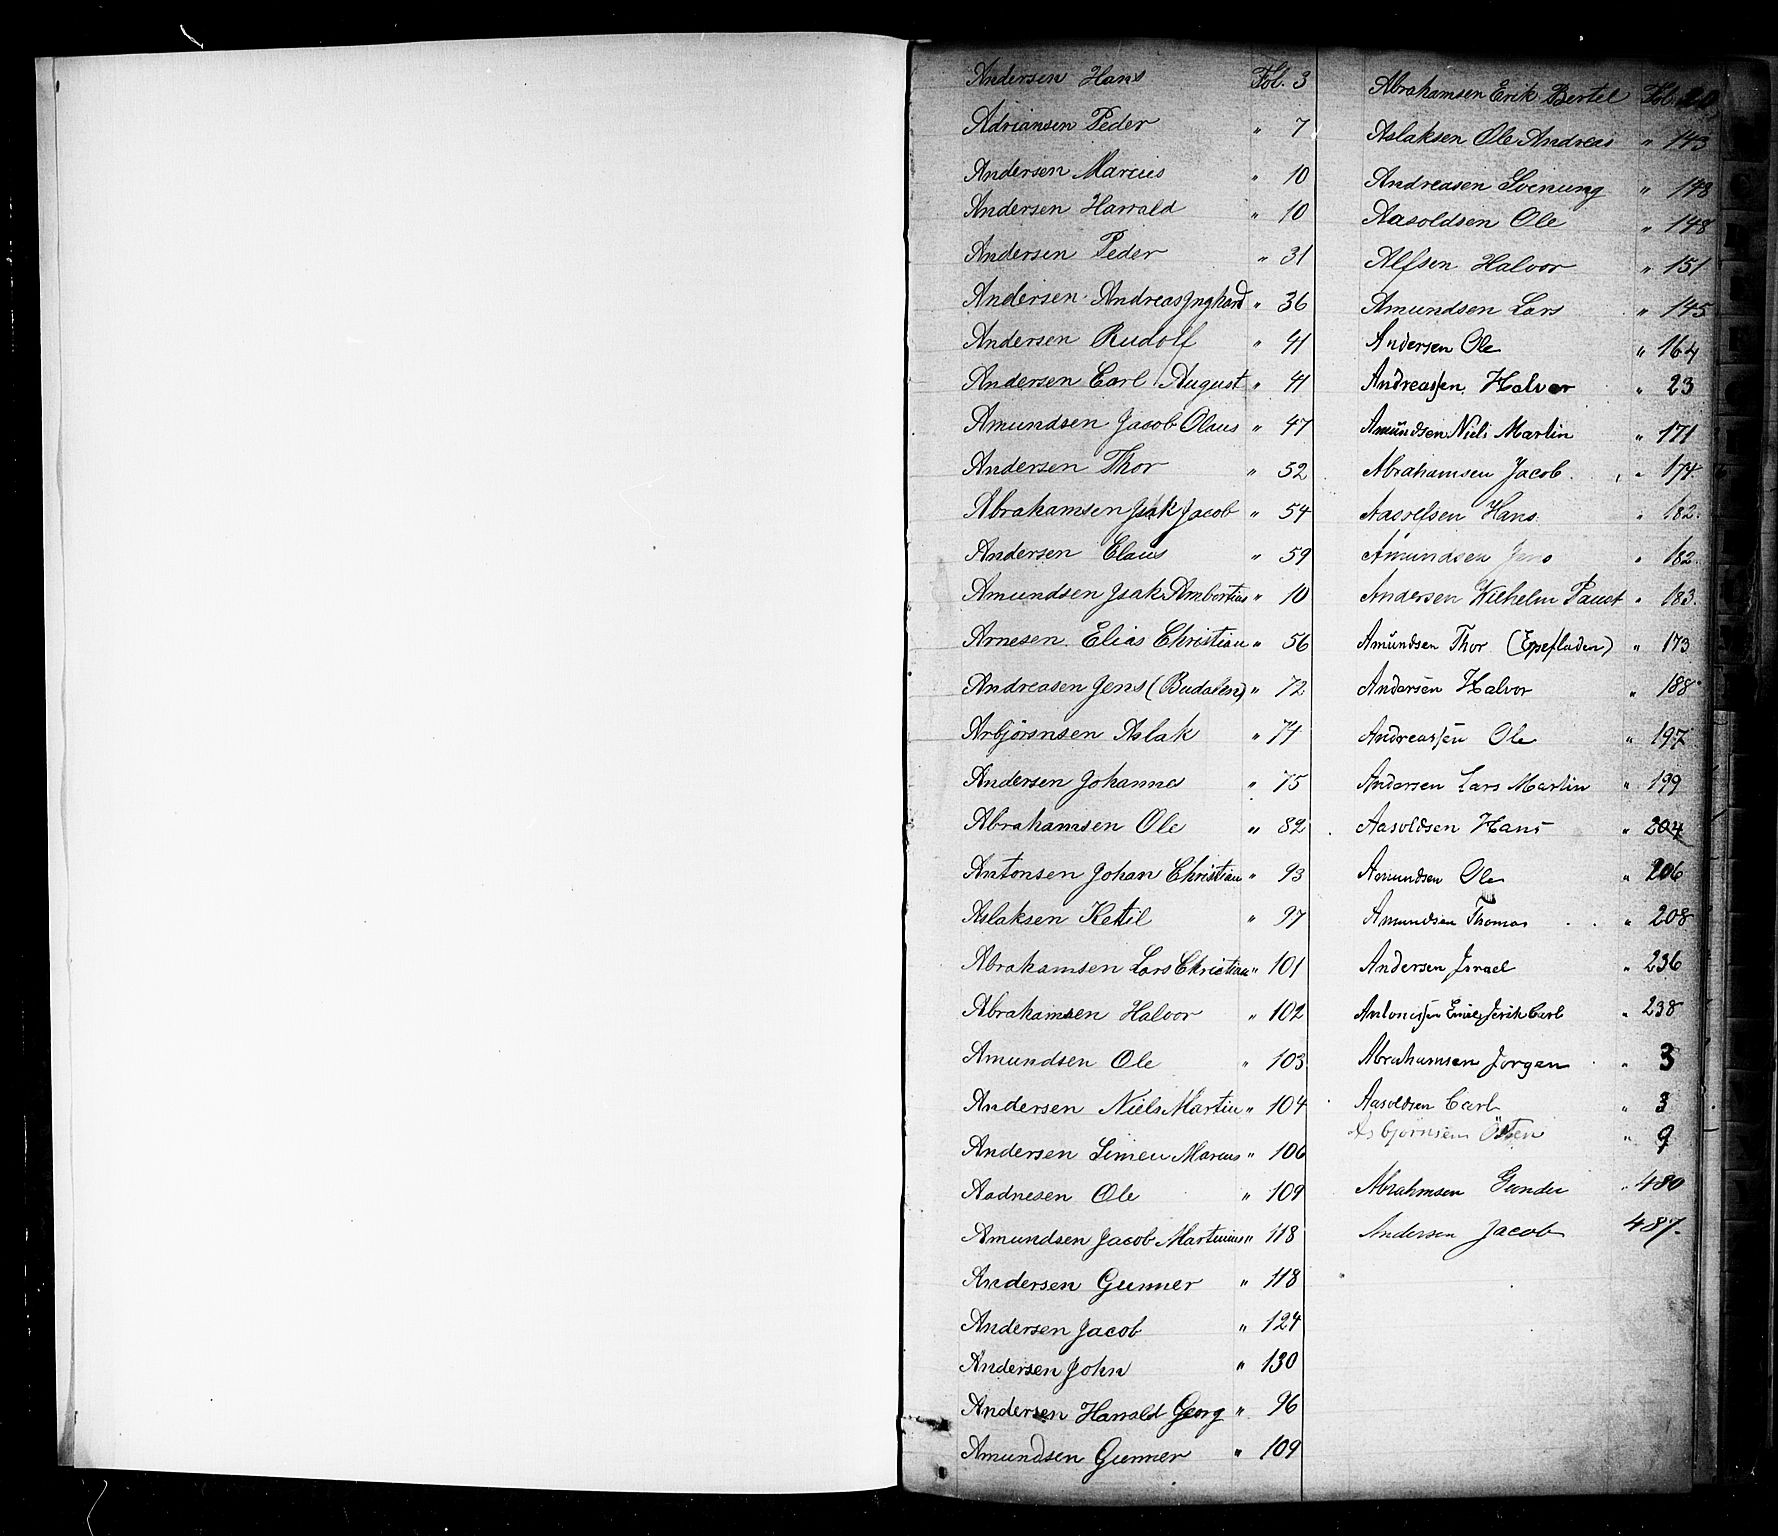 Andersen Hans Fol. 3
Adriansen Peder " 7
Andersen Marius " 10
Andersen Harrald " 10
Andersen Peder " 31
Andersen Andreas Inghard " 36
Andersen Rudolf " 41
Andersen Carl August " 41
Amundsen Jacob Olaus " 47
Andersen Thor " 52
Abrahamsen Isak Jacob " 54
Andersen Claus " 59
Amundsen Isak Ambortius " 10
Arnesen Elias Christian " 56
Andreasen Jens (Budalen) " 72
Arbjörnsen Aslak " 74
Andersen Johannes " 75
Abrahamsen Ole " 82
Antonsen Johan Christian " 93
Aslaksen Kettil " 97
Abrahamsen Lars Christian " 101
Abrahamsen Halvor " 102
Amundsen Ole " 103
Andersen Niels Martin " 104
Andersen Simen Marius " 106
Aadnesen Ole " 109
Amundsen Jacob Martinius " 118
Andersen Gunner " 118
Andersen Jacob " 124
Andersen John " 130
Andersen Harrald Georg " 96
Amundsen Gunner " 109
Abrahamsen Erik Bertel Fol.
Aslaksen Ole Andreas " 143
Andreasen Svenung " 148
Aasoldsen Ole " 148
Alfsen Halvor " 151
Amundsen Lars " 145
Andersen Ole " 164
Andreassen Halvor " 23
Amundsen Niels Martin " 171
Abrahamsen Jacob " 174
Hans " 182.
Amundsen Jens " 182.
Andersen Wilhelm Faust " 183.
Amundsen Thor " 173
Andersen Halvor " 188
Andreassen Ole " 197
Andersen Lars Martin " 199
Aasoldsen Hans " 204
Amundsen Ole " 206
Amundsen Thomas " 208
Andersen Israel " 236
Antonissen Carl " 238
Abrahamsen Jorgen " 3
Aasoldsen Carl " 3
Asbjörnsen Östen " 9
Abrahmsen Gunder " 480
Andersen Jacob 487.